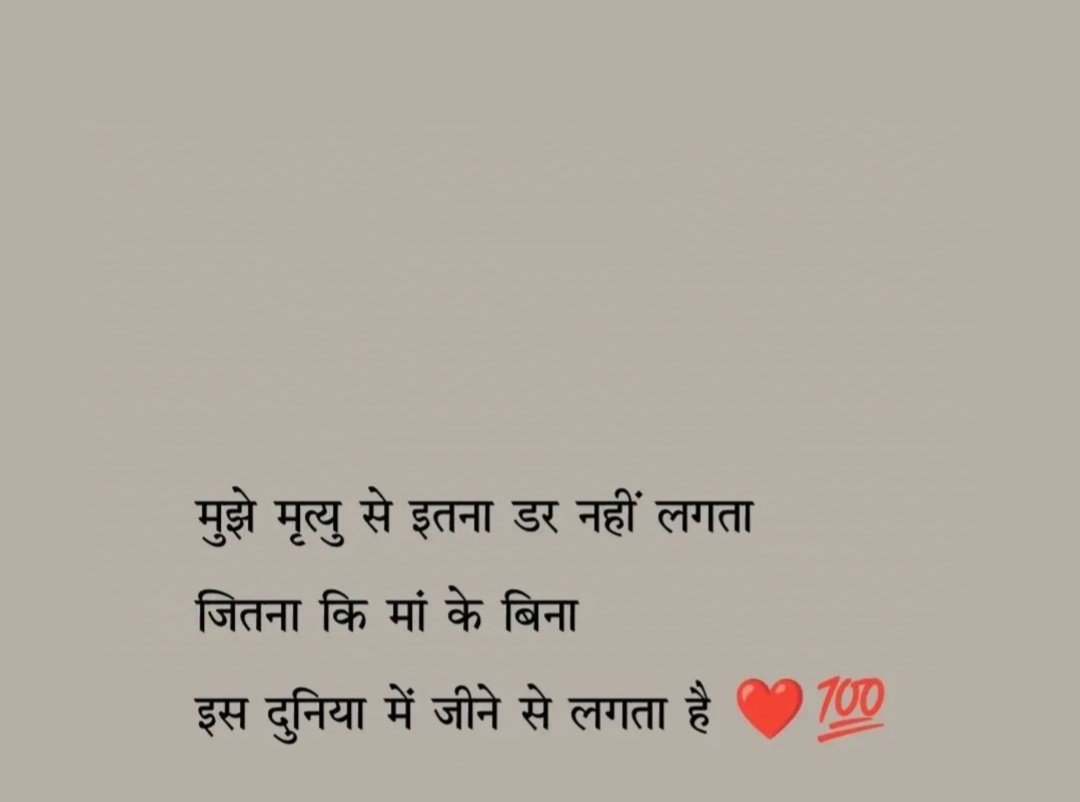 मुझे मृत्यु से इतना डर नहीं लगता
जितना कि मां के बिना
इस दुनिया में जीने से लगता है ❤️💯